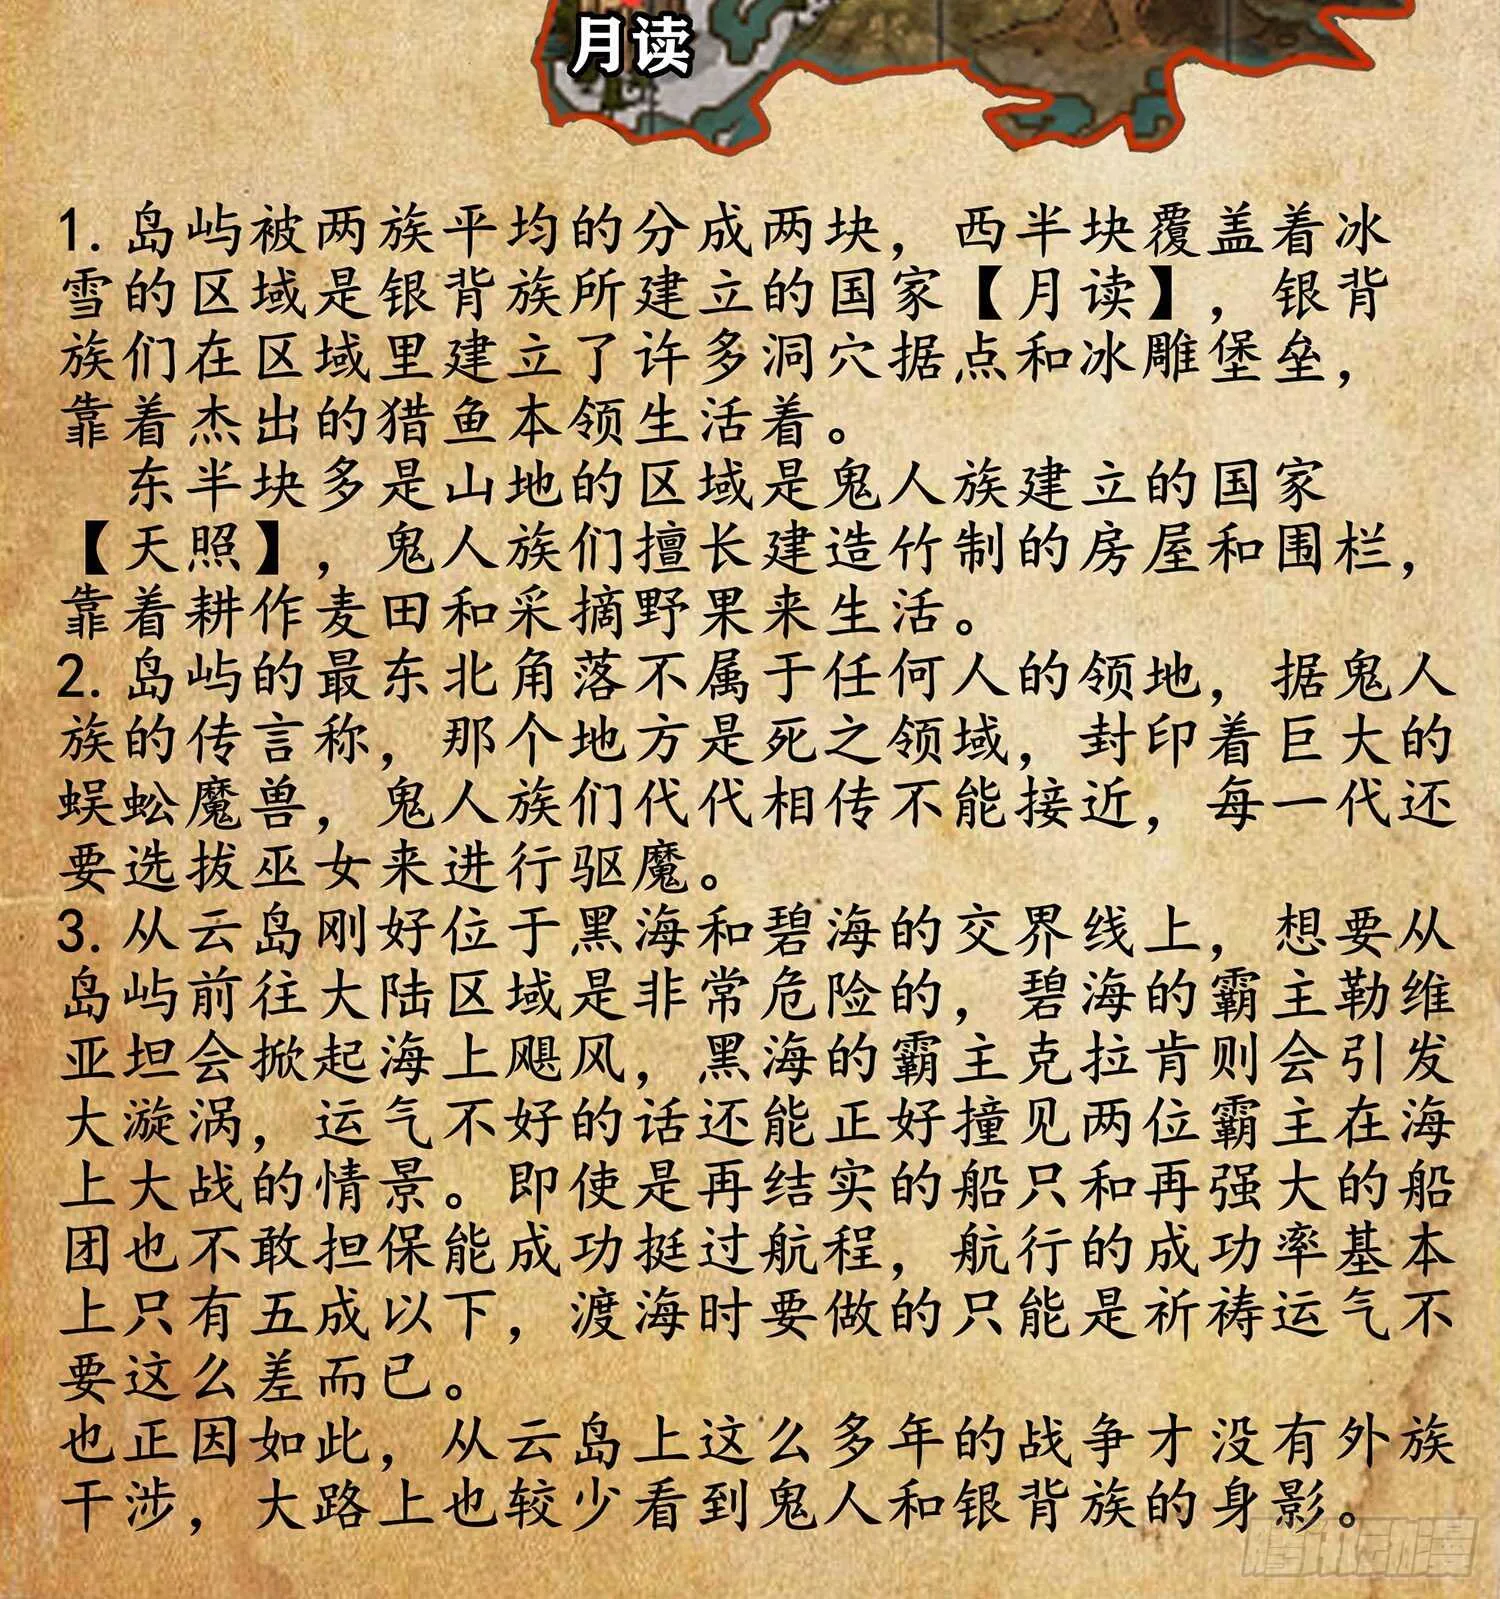 月读
1. 岛屿被两族平均的分成两块，西半块覆盖着冰
雪的区域是银背族所建立的国家【月读】，银背
族们在区域里建立了许多洞穴据点和冰雕堡垒，
靠着杰出的猎鱼本领生活着。
东半块多是山地的区域是鬼人族建立的国家
【天照】，鬼人族们擅长建造竹制的房屋和围栏，
靠着耕作麦田和采摘野果来生活。
2. 岛屿的最东北角落不属于任何人的领地，据鬼人
族的传言称，那个地方是死之领域，封印着巨大的
蜈蚣魔兽，鬼人族们代代相传不能接近，每一代还
要选拔巫女来进行驱魔。
3. 从云岛刚好位于黑海和碧海的交界线上，想要从
岛屿前往大陆区域是非常危险的，碧海的霸主勒维
亚坦会掀起海上飓风，黑海的霸主克拉肯则会引发
大漩涡，运气不好的话还能正好撞见两位霸主在海
上大战的情景。即使是再结实的船只和再强大的船
团也不敢担保能成功挺过航程，航行的成功率基本
上只有五成以下，渡海时要做的只能是祈祷运气不
要这么差而已。
也正因如此，从云岛上这么多年的战争才没有外族
干涉，大路上也较少看到鬼人和银背族的身影。
腾讯动漫